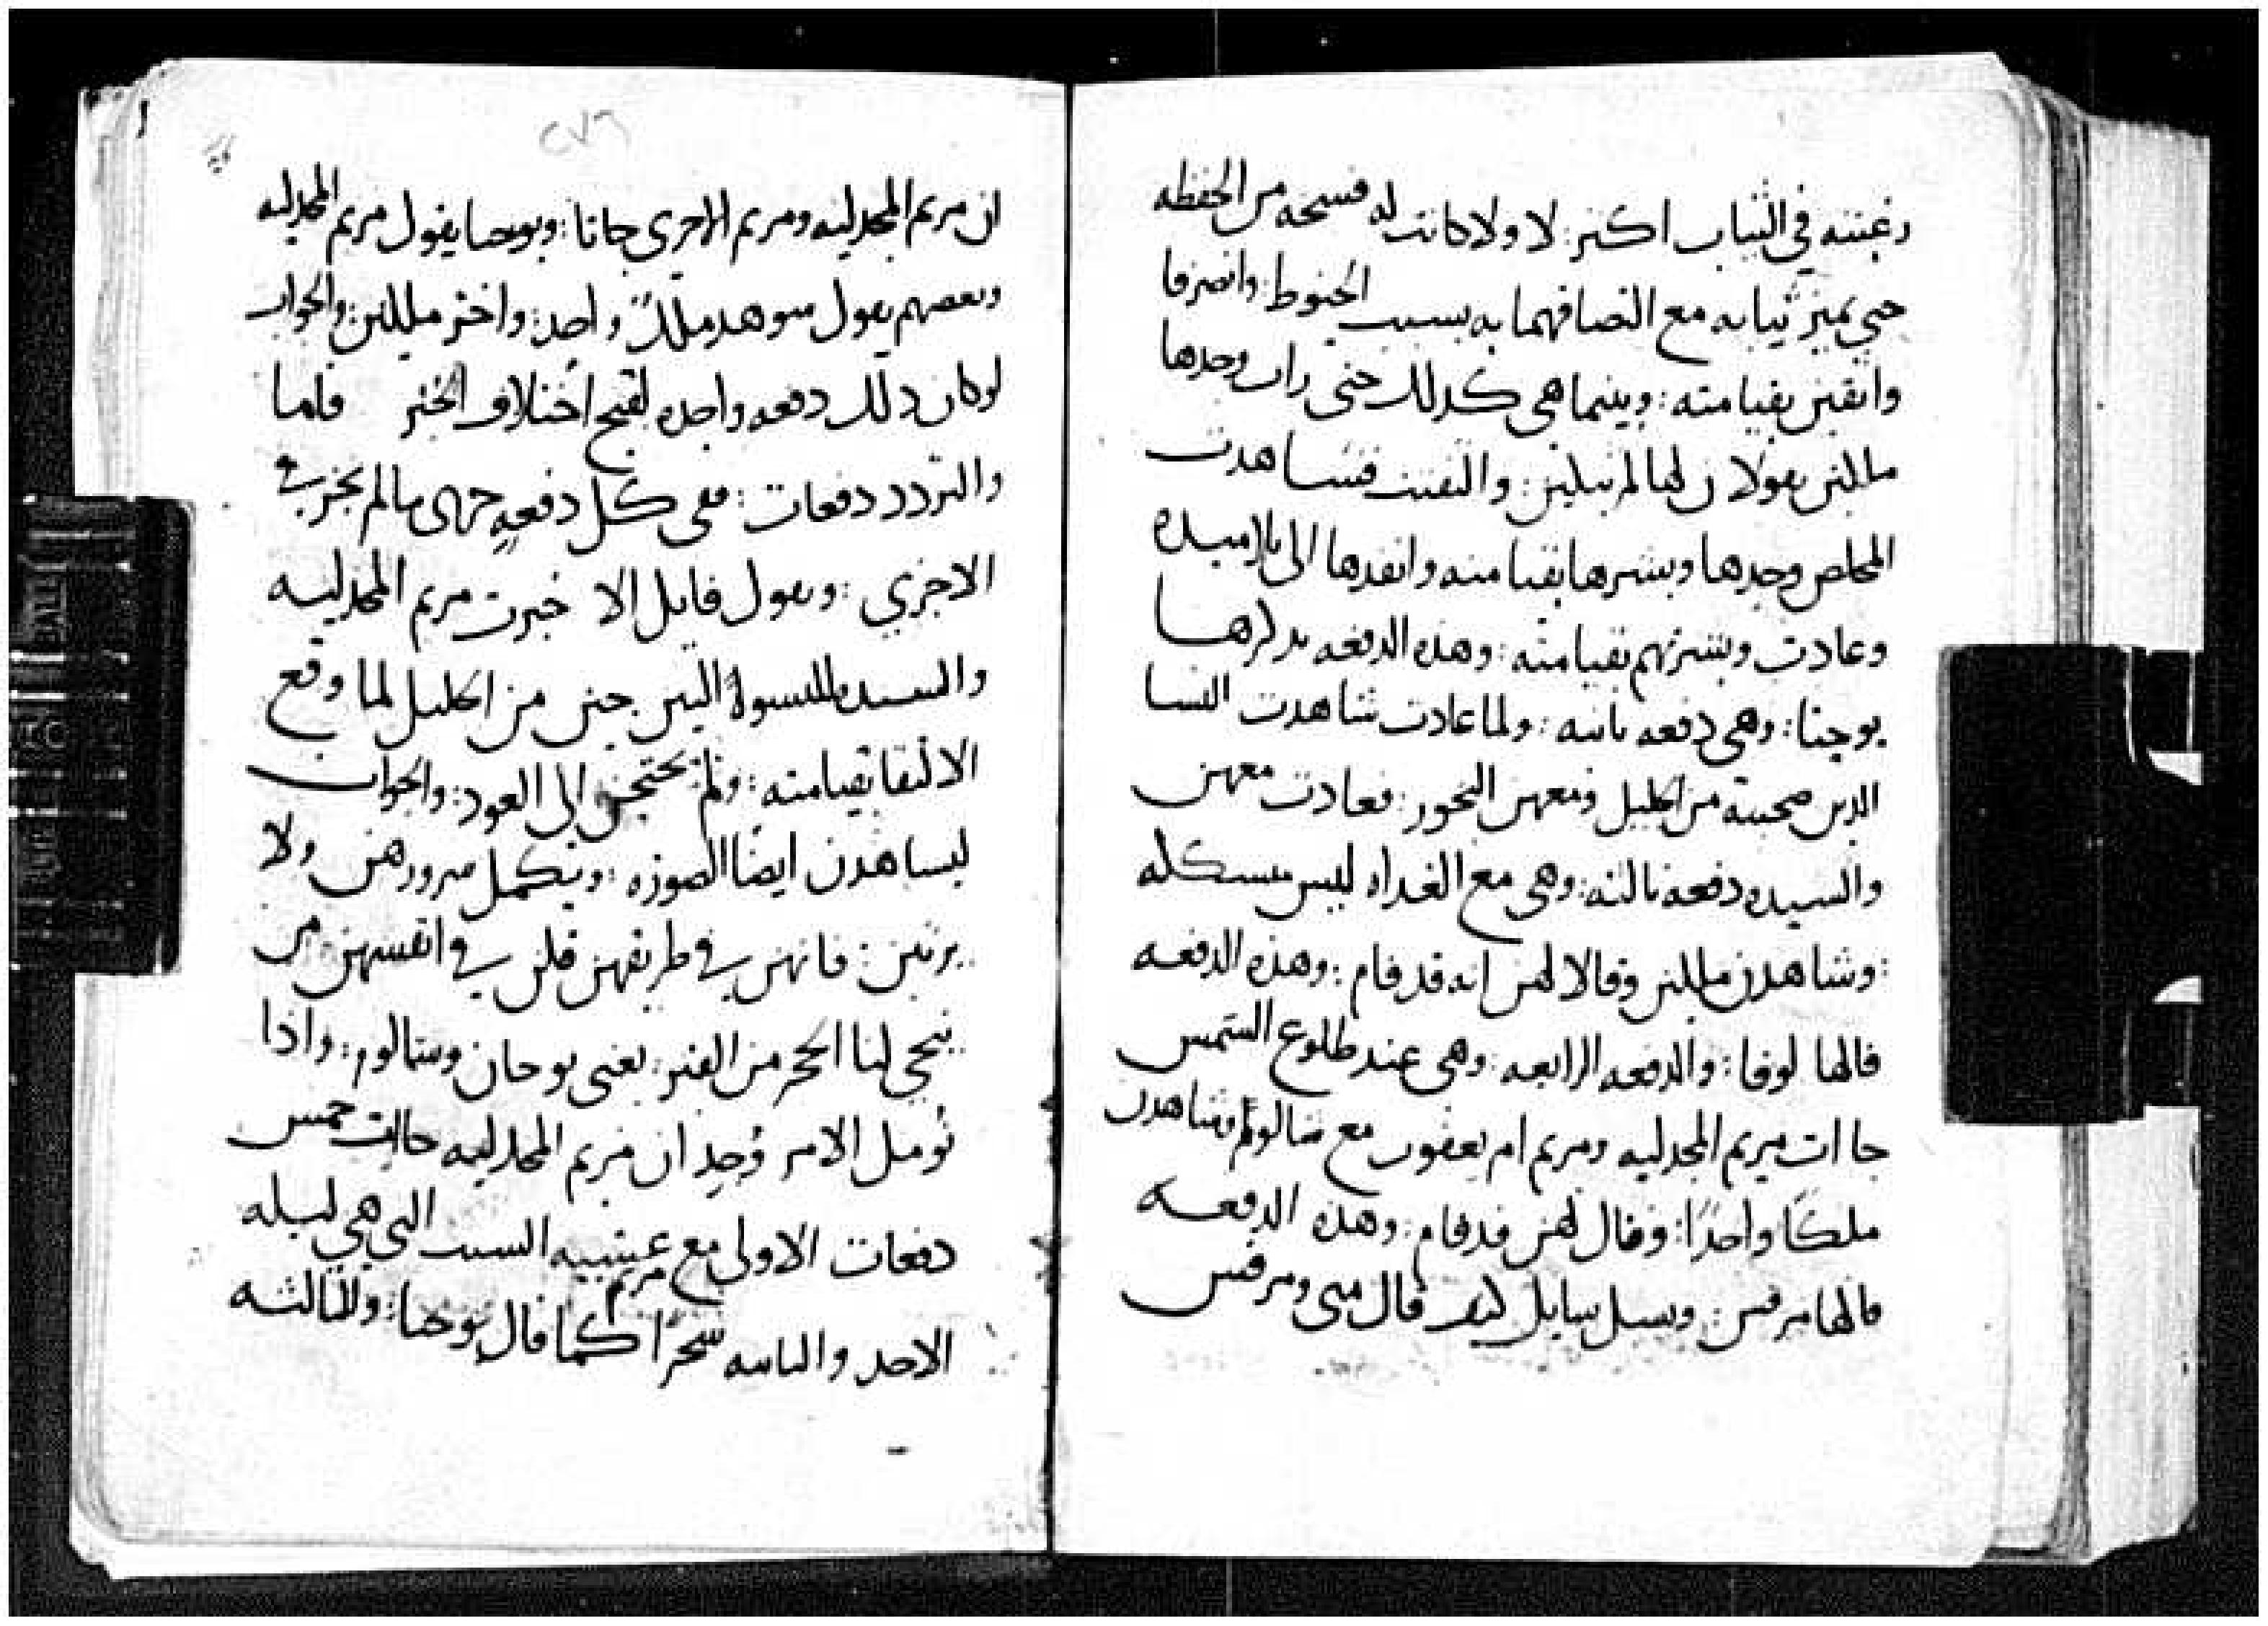 رغبته في الثياب اكثر: لا ولا كانت له فسحه من الحفظه
حتي يميز ثيابه مع التصاقهما به بسبب الحنوط: وانصرفا
واثقين بقيامته: وبينما هي كدلك حتى رات وحدها
ملاكين يقولان لها لم تبكين: والتفتت فشاهدت
المخلص وحدها وبشرها بقيامته وانفدها الى تلاميده
وعادت وبشرتهم بقيامته: وهذه الدفعه يدكرها
يوحنا: وهي دفعه ثانيه: ولما عادت شاهدت النسا
الدين صحبته من الجليل ومعهن البخور: فعادت معهن
والسيده دفعه ثالثه: وهي مع الغداه ليس مشكله
: وشاهدن ملاكين وقالا لهن انه قد قام: وهذه الدفعه
قالها لوقا: والدفعه الرابعه: وهي عند طلوع الشمس
جاات مريم المجدليه ومريم ام يعقوب مع سالوم وشاهدن
ملكًا واحدًا: وقال لهن قد قام: وهذه الدفعه
قالها مرقس: وسيل سايل كيف قال متى ومرقس
٢٧٦
ان مريم المجدليه ومريم الاخرى جاتا: ويوحنا يقول مريم المجدليه
وبعضهم يقول شوهد ملاك واحد: واخر ملاكين: والجواب
لوكان دلك دفعه واحده لقبح اختلاف الخبر فاما
والتردد دفعات: ففي كل دفعه جرى ما لم يجر في
الاخري: ويقول قايل الا خبرت مريم المجدليه
والسيده للنسوة التين جين من الجليل لما وقع
الالتقا بقيامته: ولم يحتجن الى العود: والجواب
ليشاهدن ايضًا الصوره: ويكمل سرورهن ولا
يرتبن: فانهن في طريقهن قلن في انفسهن من
ينحي لنا الحجر من القبر: يعنى يوحان وسالوم: واذا
تُومل الامر وُجد ان مريم المجدليه جاات خمس
دفعات الاولى مع مريم عشيه السبت التي هي ليله
الاحد والثانيه سَحرًا كما قال يوحنا: والثالثه